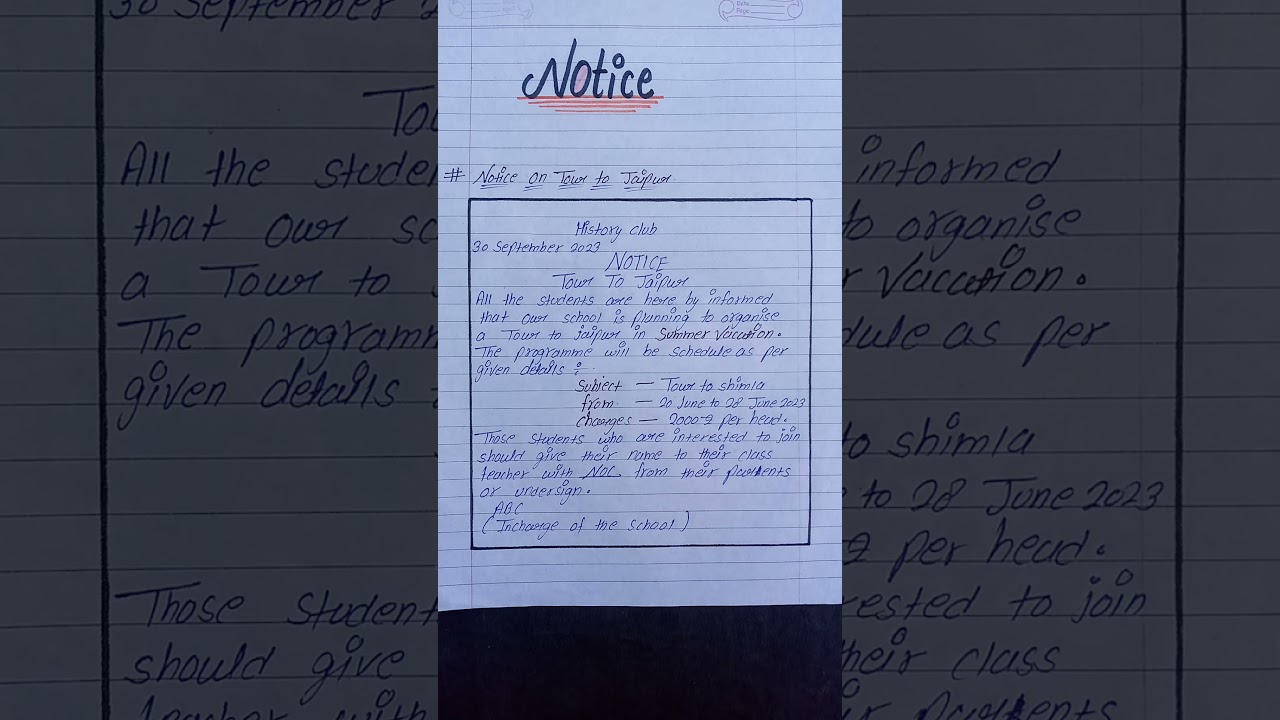 Notice
# Notice on Tour to Jaipur
History club
30 September 2023
NOTICE
Tour To Jaipur
All the students are here by informed
that our school is planning to organise
a Tour to Jaipur in Summer Vacation.
The programme will be schedule as per
given details :-
Subject — Tour to shimla
from — 20 June to 28 June 2023
charges — 2000 per head.
Those students who are interested to join
should give their name to their class
teacher with NOC from their parents
or undersign.
ABC
(Incharge of the school)